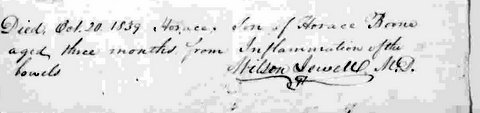 Died, Oct. 20. 1839 Horace, Son of Horace Boone
aged three months from Inflammation of the
bowels
Wilson Jewell, M.D.